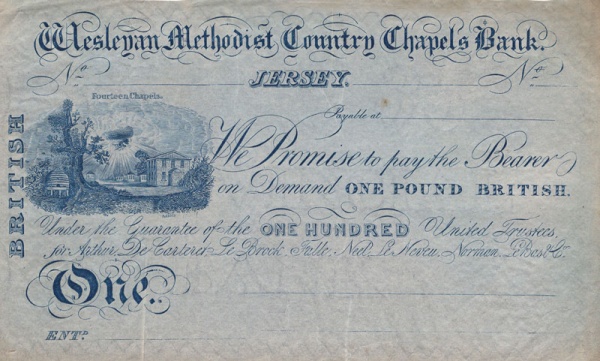 Wesleyan Methodist Country Chapels Bank.
No JERSEY. No
Fourteen Chapels.
Payable at
BRITISH
We Promise to pay the Bearer
on Demand ONE POUND BRITISH.
Under the Guarantee of the ONE HUNDRED United Trustees,
for Arthur, De Carteret, Le Brock, Falle, Neel, Norman, Le Bas & Co.
One.
ENTD.